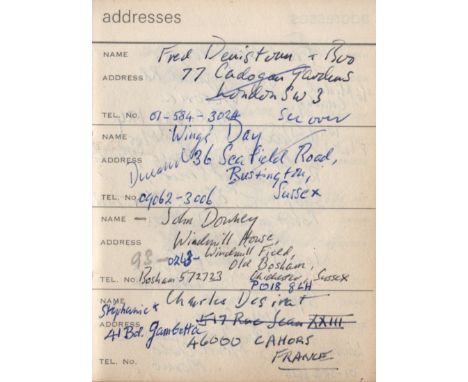 addresses
NAME Fred Denistoun + Boo
ADDRESS 77 Cadogan Gardens
London SW3
TEL. NO. 01-584-3024 See over
NAME Wings Day
ADDRESS Deceased 36 Seafield Road,
Rustington,
Sussex
TEL. NO. 09062-3006
NAME – John Downey
ADDRESS Windmill House,
93- 0243- Windmill Field,
Old Bosham,
TEL. NO. Bosham 572723 Chichester, Sussex
PO18 8LH
NAME Stephanie * Charles Desirat
ADDRESS 41 Bd. Gambetta 547 Rue Jean XXIII
46000 CAHORS
TEL. NO. FRANCE